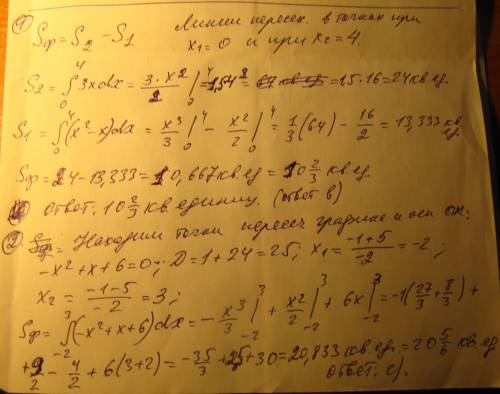 ① Sф = S₂ - S₁ Линии пересек. в точках при
x₁=0 и при x₂=4.
S₂ = ∫₀⁴ 3xdx = 3·x²/2 |₀⁴ = 1,5·4² = = 1,5·16 = 24 кв.ед.
S₁ = ∫₀⁴ (x²-x)dx = x³/3 |₀⁴ - x²/2 |₀⁴ = 1/3 (64) - 16/2 = 13,333 кв.ед.
Sф = 24 - 13,333 = 10,667 кв.ед = 10 2/3 кв.ед.
Ответ: 10 2/3 кв. единиц. (ответ в)
② Находим точки пересеч графика и оси ОХ:
-x²+x+6=0; D=1+24=25; x₁ = (-1+5)/-2 = -2;
x₂ = (-1-5)/-2 = 3;
Sф = ∫₋₂³ (-x²+x+6)dx = -x³/3 |₋₂³ + x²/2 |₋₂³ + 6x |₋₂³ = -1(27/3 + 8/3) +
+ 9/2 - 4/2 + 6(3+2) = -35/3 + 2,5 + 30 = 20,833 кв.ед. = 20 5/6 кв.ед
ответ: г).